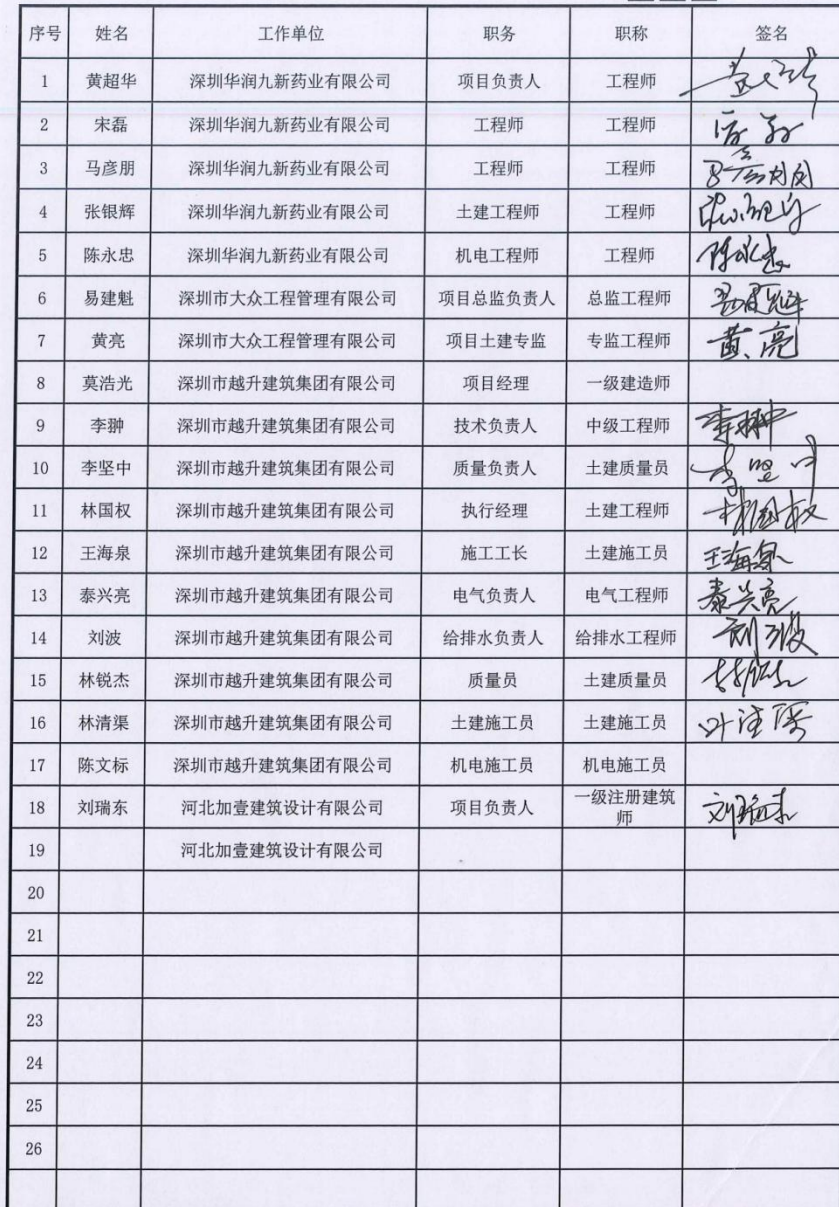 序号 姓名 工作单位 职务 职称 签名
1 黄超华 深圳华润九新药业有限公司 项目负责人 工程师
2 宋磊 深圳华润九新药业有限公司 工程师 工程师
3 马彦朋 深圳华润九新药业有限公司 工程师 工程师
4 张银辉 深圳华润九新药业有限公司 土建工程师 工程师
5 陈永忠 深圳华润九新药业有限公司 机电工程师 工程师 陈永忠
6 易建魁 深圳市大众工程管理有限公司 项目总监负责人 总监工程师 易建魁
7 黄亮 深圳市大众工程管理有限公司 项目土建专监 专监工程师 黄亮
8 莫浩光 深圳市越升建筑集团有限公司 项目经理 一级建造师
9 李翀 深圳市越升建筑集团有限公司 技术负责人 中级工程师 李翀
10 李坚中 深圳市越升建筑集团有限公司 质量负责人 土建质量员 李坚中
11 林国权 深圳市越升建筑集团有限公司 执行经理 土建工程师 林国权
12 王海泉 深圳市越升建筑集团有限公司 施工工长 土建施工员 王海泉
13 泰兴亮 深圳市越升建筑集团有限公司 电气负责人 电气工程师 泰兴亮
14 刘波 深圳市越升建筑集团有限公司 给排水负责人 给排水工程师 刘波
15 林锐杰 深圳市越升建筑集团有限公司 质量员 土建质量员
16 林清渠 深圳市越升建筑集团有限公司 土建施工员 土建施工员
17 陈文标 深圳市越升建筑集团有限公司 机电施工员 机电施工员
18 刘瑞东 河北加壹建筑设计有限公司 项目负责人 一级注册建筑
师 刘瑞东
19 河北加壹建筑设计有限公司
20
21
22
23
24
25
26